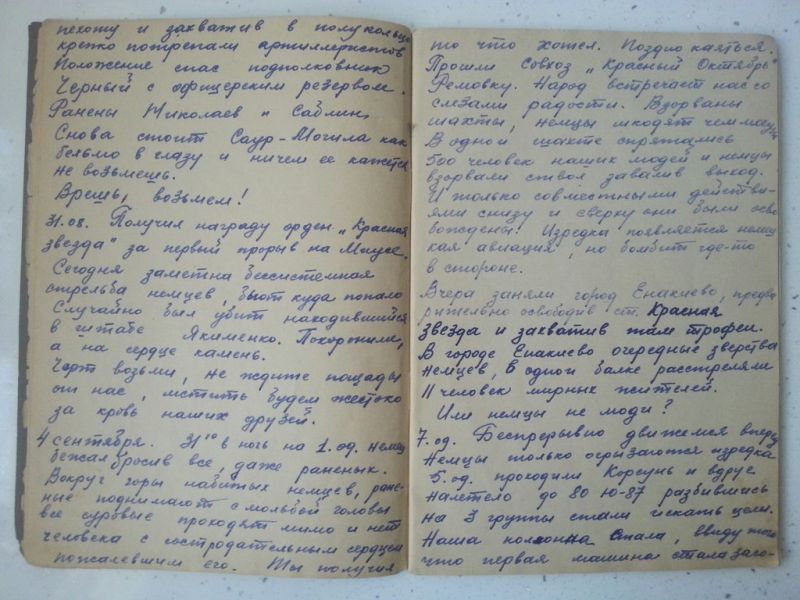 пехоту и захватив в полукольцо
крепко потрепали артиллеристов
Положение спас подполковник
Черный с офицерским резервом.
Ранены Миколаев и Саблин,
Снова стоит Саур-Могила как
бельмо в глазу и ничем ее кажется
не возьмешь.
Врешь, возьмем!
31.08. Получил награду орден „Красная
звезда" за первый прорыв на Миусе.
Сегодня заметна бессистемная
стрельба немцев, бьют куда попало
Случайно был убит находившийся
в штабе Якименко. Похоронили,
а на сердце камень.
Черт возьми, не ждите пощады
от нас, мстить будем жестоко
за кровь наших друзей.
4 сентября. 31го в ночь на 1.09. немец
бежал бросив все, даже раненых.
Вокруг горы набитых немцев, ране-
ные поднимают с мольбой головы
все суровые проходят мимо и нет
человека с сострадательным сердцем
пожалевшим его. Ты получил
то что хотел. Поздно каяться.
Прошли совхоз „Красный Октябрь"
Ремовку. Народ встречает нас со
слезами радости. Взорваны
шахты, немцы шкодят чем могут
В одной шахте спрятались
500 человек наших людей и немцы
взорвали ствол завалив выход.
И только совместными действи-
ями снизу и сверху они были осво
бождены. Изредка появляется немец
кая авиация, но бомбит где-то
в стороне.
Вчера заняли город Енакиево, предва
рительно освободив ст. Красная
звезда и захватив там трофеи.
В городе Енакиево, очередные зверства
немцев, в одной балке расстреляли
11 человек мирных жителей.
Или немцы не люди?
7.09. Беспрерывно движемся вперед
Немцы только огрызаются изредка
5.09. проходили Корсунь и вдруг
налетело до 80 Ю-87 разбившись
на 3 группы стали искать цели.
Наша колонна стала, ввиду того
что первая машина стала заго-